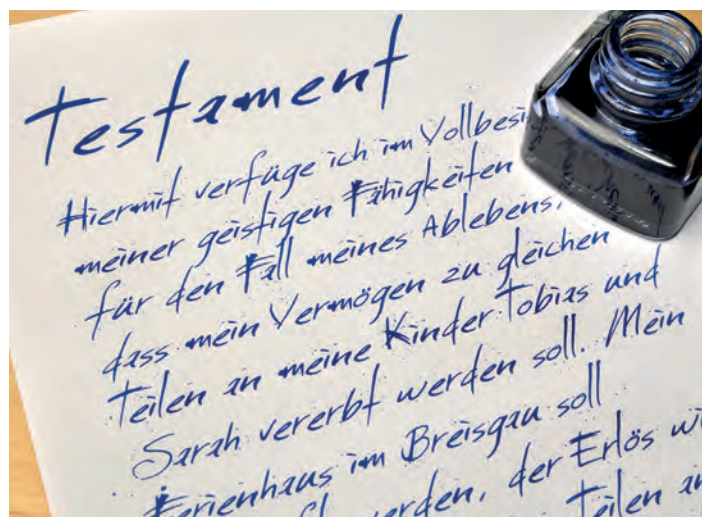 Testament
Hiermit verfüge ich im Vollbesi
meiner geistigen Fähigkeiten
für den Fall meines Ablebens,
dass mein Vermögen zu gleichen
Teilen an meine Kinder Tobias und
Sarah vererbt werden soll. Mein
Ferienhaus im Breisgau soll
werden, der Erlös wi
Teilen an